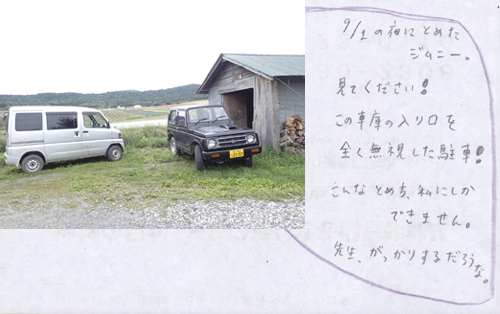 9/1の夜にとめた
ジムニー。
見てください!
この車庫の入り口を
全く無視した駐車!
こんなとめ方、私にしか
できません。
先生、がっかりするだろうな。